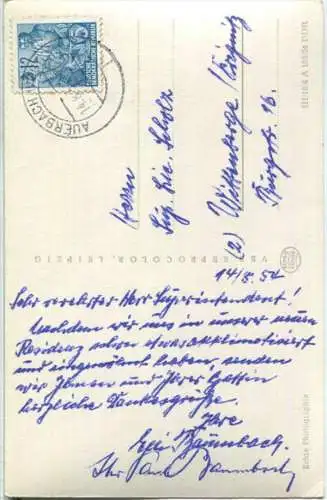 AUERBACH
Herrn
Sup. Lic. Scholz
(2) Wittenberge / Prignitz
Burgstr. 16.
III/18/6 A 185/54 DDR
VEB REPROCOLOR LEIPZIG
14/8. 54
Sehr verehrter Herr Superintendent!
Nachdem wir uns in unserer neuen
Residenz schon etwas akklimatisiert
und eingewöhnt haben, senden
wir Ihnen und Ihrer Gattin
herzliche Dankesgrüße.
Ihre
Baumbach.
Ihr Baumbach
Echte Photographie